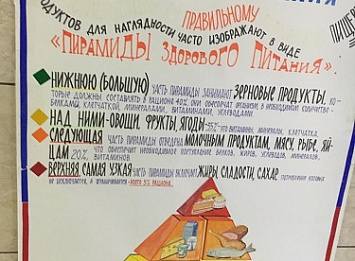 ПРАВИЛЬНОМУ
ПРОДУКТОВ ДЛЯ НАГЛЯДНОСТИ ЧАСТО ИЗОБРАЖАЮТ В ВИДЕ
«ПИРАМИДЫ ЗДОРОВОГО ПИТАНИЯ».
НИЖНЮЮ (БОЛЬШУЮ) ЧАСТЬ ПИРАМИДЫ ЗАНИМАЮТ ЗЕРНОВЫЕ ПРОДУКТЫ, КО-
ТОРЫЕ ДОЛЖНЫ СОСТАВЛЯТЬ В РАЦИОНЕ 40%. ОНИ ОБЕСПЕЧАТ РЕШЕНИЕ В НЕОБХОДИМОМ КОЛИЧЕСТВЕ -
БЕЛКАМИ, КЛЕТЧАТКОЙ, МИНЕРАЛАМИ, ВИТАМИНАМИ, УГЛЕВОДАМИ
НАД НИМИ-ОВОЩИ, ФРУКТЫ, ЯГОДЫ -35%- ЭТО ВИТАМИНЫ, МИНЕРАЛЫ, КЛЕТЧАТКА,
СЛЕДУЮЩАЯ ЧАСТЬ ПИРАМИДЫ ОТВЕДЕНА МОЛОЧНЫМ ПРОДУКТАМ, МЯСУ, РЫБЕ, ЯЙ-
ЦАМ 20%, ЧТО ОБЕСПЕЧИТ НЕОБХОДИМОЕ ПОСТУПЛЕНИЕ БЕЛКОВ, ЖИРОВ, УГЛЕВОДОВ, МИНЕРАЛОВ,
ВИТАМИНОВ
ВЕРХНЯЯ, САМАЯ УЗКАЯ ЧАСТЬ ПИРАМИДЫ ВКЛЮЧАЕТ ЖИРЫ, СЛАДОСТИ, САХАР,
НЕ ИСКЛЮЧАЕТСЯ, А ОГРАНИЧИВАЕТСЯ - ВСЕГО 5% РАЦИОНА.